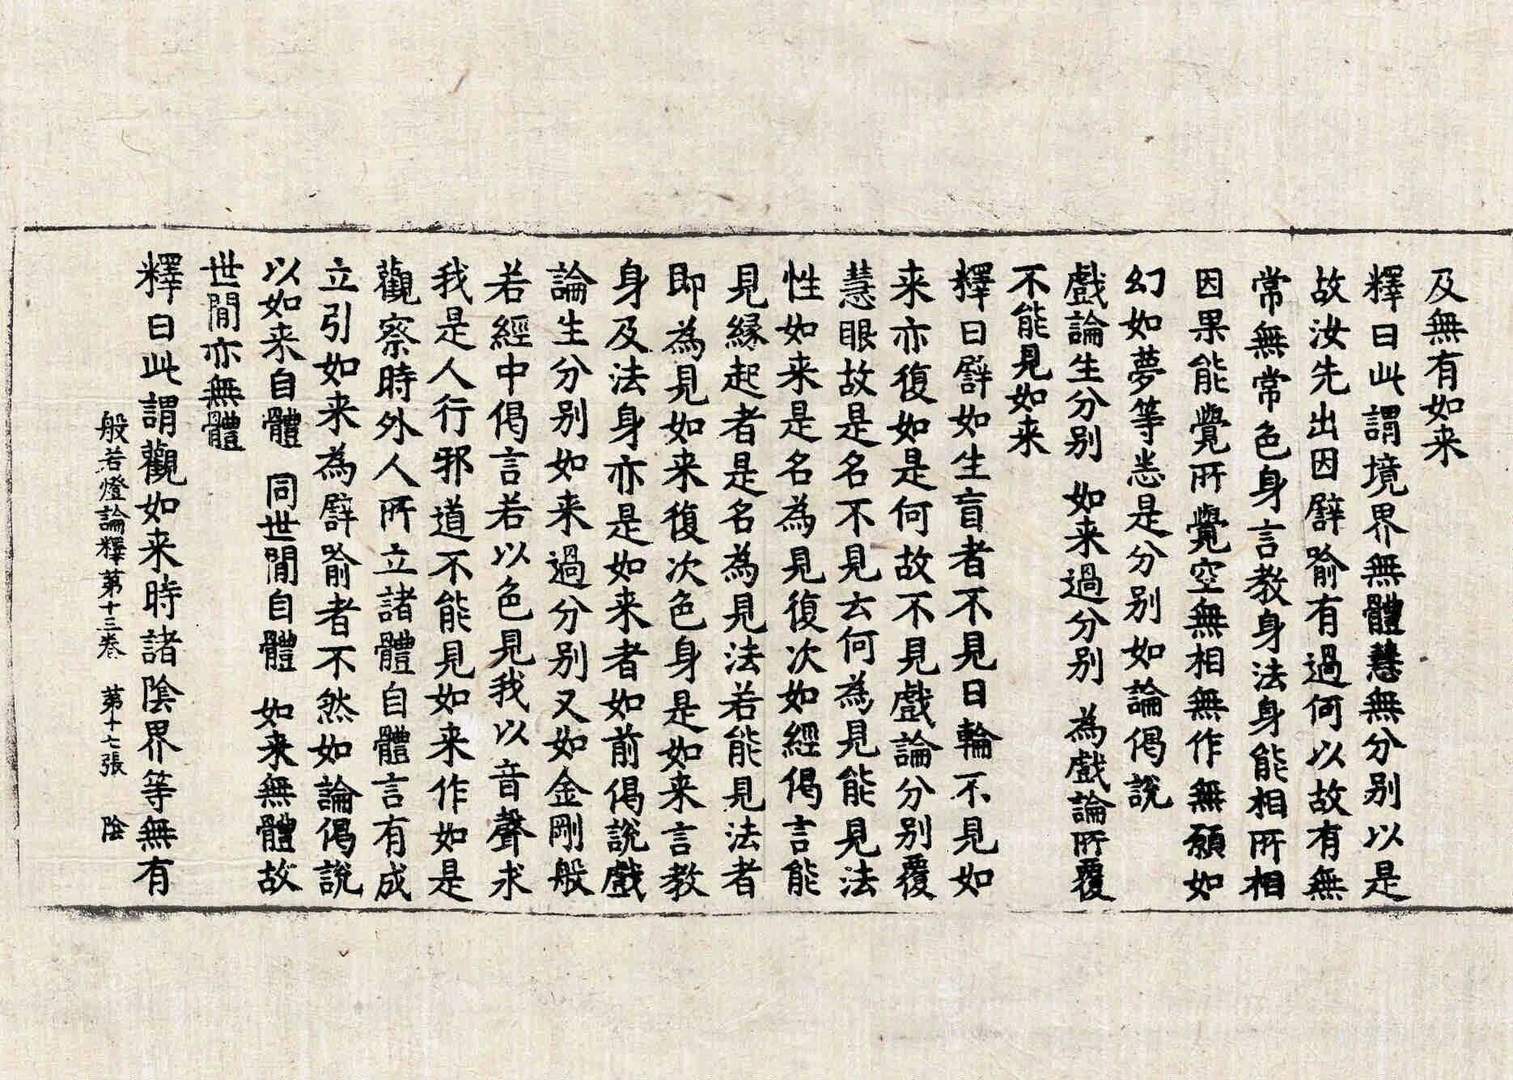 及無有如来
釋曰此謂境界無體慧無分别以是
故汝先出因譬喻有過何以故有無
常無常色身言教身法身能相所相
因果能覺所覺空無相無作無願如
幻如夢等悉是分别如論偈說
戲論生分别 如来過分别 為戲論所覆
不能見如来
釋曰譬如生盲者不見日輪不見如
来亦復如是何故不見戲論分别覆
慧眼故是名不見云何為見能見法
性如来是名為見復次如經偈言能
見緣起者是名為見法若能見法者
即為見如来復次色身是如来言教
身及法身亦是如来者如前偈說戲
論生分别如来過分别又如金剛般
若經中偈言若以色見我以音聲求
我是人行邪道不能見如来作如是
觀察時外人所立諸體自體言有成
立引如来為譬喻者不然如論偈說
以如来自體 同世間自體 如来無體故
世間亦無體
釋曰此謂觀如来時諸陰界等無有
般若燈論釋第十三卷 第十七張 陰